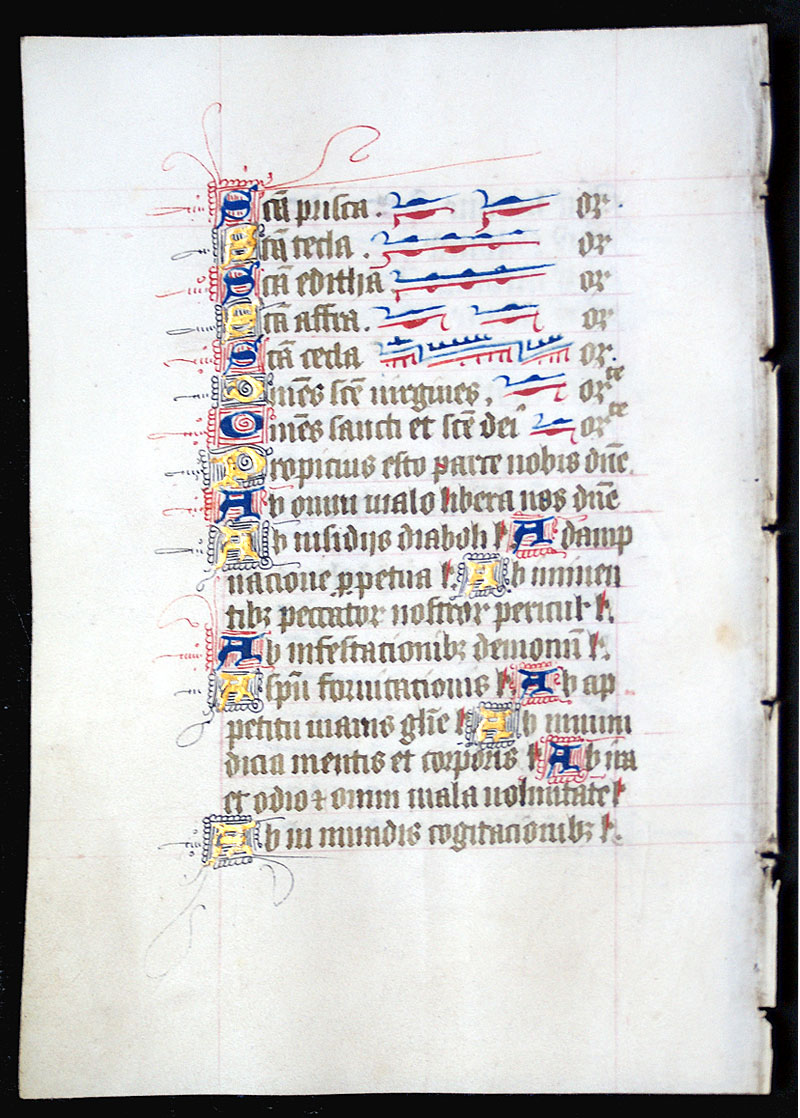 Scã prisca. or.
Scã tecla. or
Scã editha or
Scã affra. or
Scã cecla or.
Omẽs scẽ uirgines, orte
Omẽs sancti et scẽ dei orte
Propicius esto parce nobis dñe
Ab omni malo libera nos dñe
Ab insidijs diaboli l. A damp
nacione ꝑpetua l. Ab inminen
tibꝫ peccatoꝝ nostroꝝ pericul l.
Ab infestacionibꝫ demonũ l.
A spũ fornicationis l. Ab ap
petitu inanis glĩe l. Ab inmun
dicia mentis et corporis l. Ab ira
et odio ⁊ omni mala uoluntate l
Ab in mundis cogitacionibꝫ l.